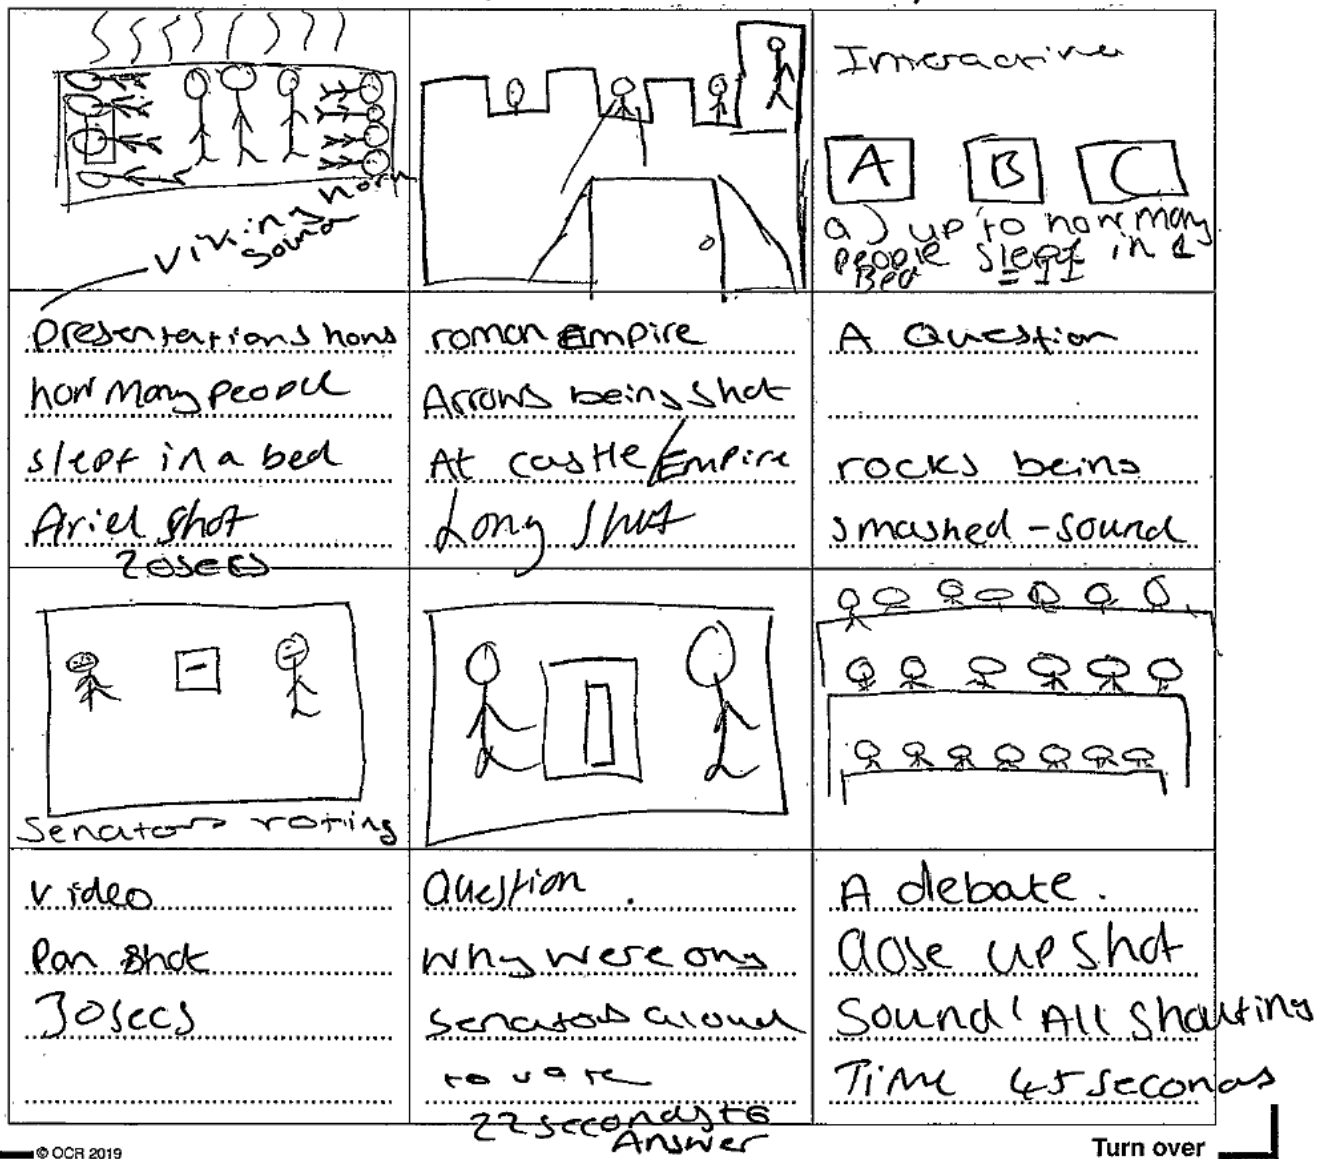 Viking horn
sound
Interactive
A B C
a) up to how many
people slept in 1
Bed
presentations hons
how many people
slept in a bed
Ariel shot
20secs
roman Empire
Arrows being shot
At castle/Empire
Long shot
A Question
rocks being
smashed - sound
senators voting
video
Pan shot
30secs
Question.
why were ony
senators aloud
to vote
22 seconds to
Answer
A debate.
Close up shot
Sound ! All Shouting
Time 45 seconds
© OCR 2019
Turn over